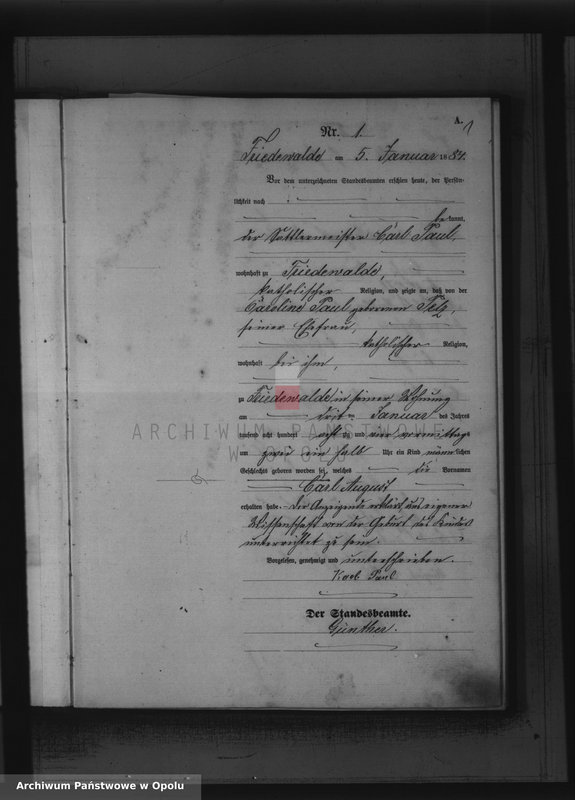 A.
1
Nr. 1.
Friedewalde am 5. Januar 1884.
Vor dem unterzeichneten Standesbeamten erschien heute, der Persön-
lichkeit nach
bekannt,
der Sattlermeister Carl Paul,
wohnhaft zu Friedewalde,
katholischer Religion, und zeigte an, daß von der
Caroline Paul geborenen Pelz,
seiner Ehefrau,
katholischer Religion,
wohnhaft bei ihm,
zu Friedewalde in seiner Wohnung
am drei ten Januar des Jahres
tausend acht hundert acht zig und vier vormittags
um zwei ein halb Uhr ein Kind männlichen
Geschlechts geboren worden sei, welches die Vornamen
Carl August
erhalten habe. Der Anzeigende erklärt, aus eigener
Wissenschaft von der Geburt des Kindes
unterrichtet zu sein.
Vorgelesen, genehmigt und unterschrieben.
Karl Paul
Der Standesbeamte.
Günther.
ARCHIWUM PAŃSTWOWE
W OPOLU
Archiwum Państwowe w Opolu